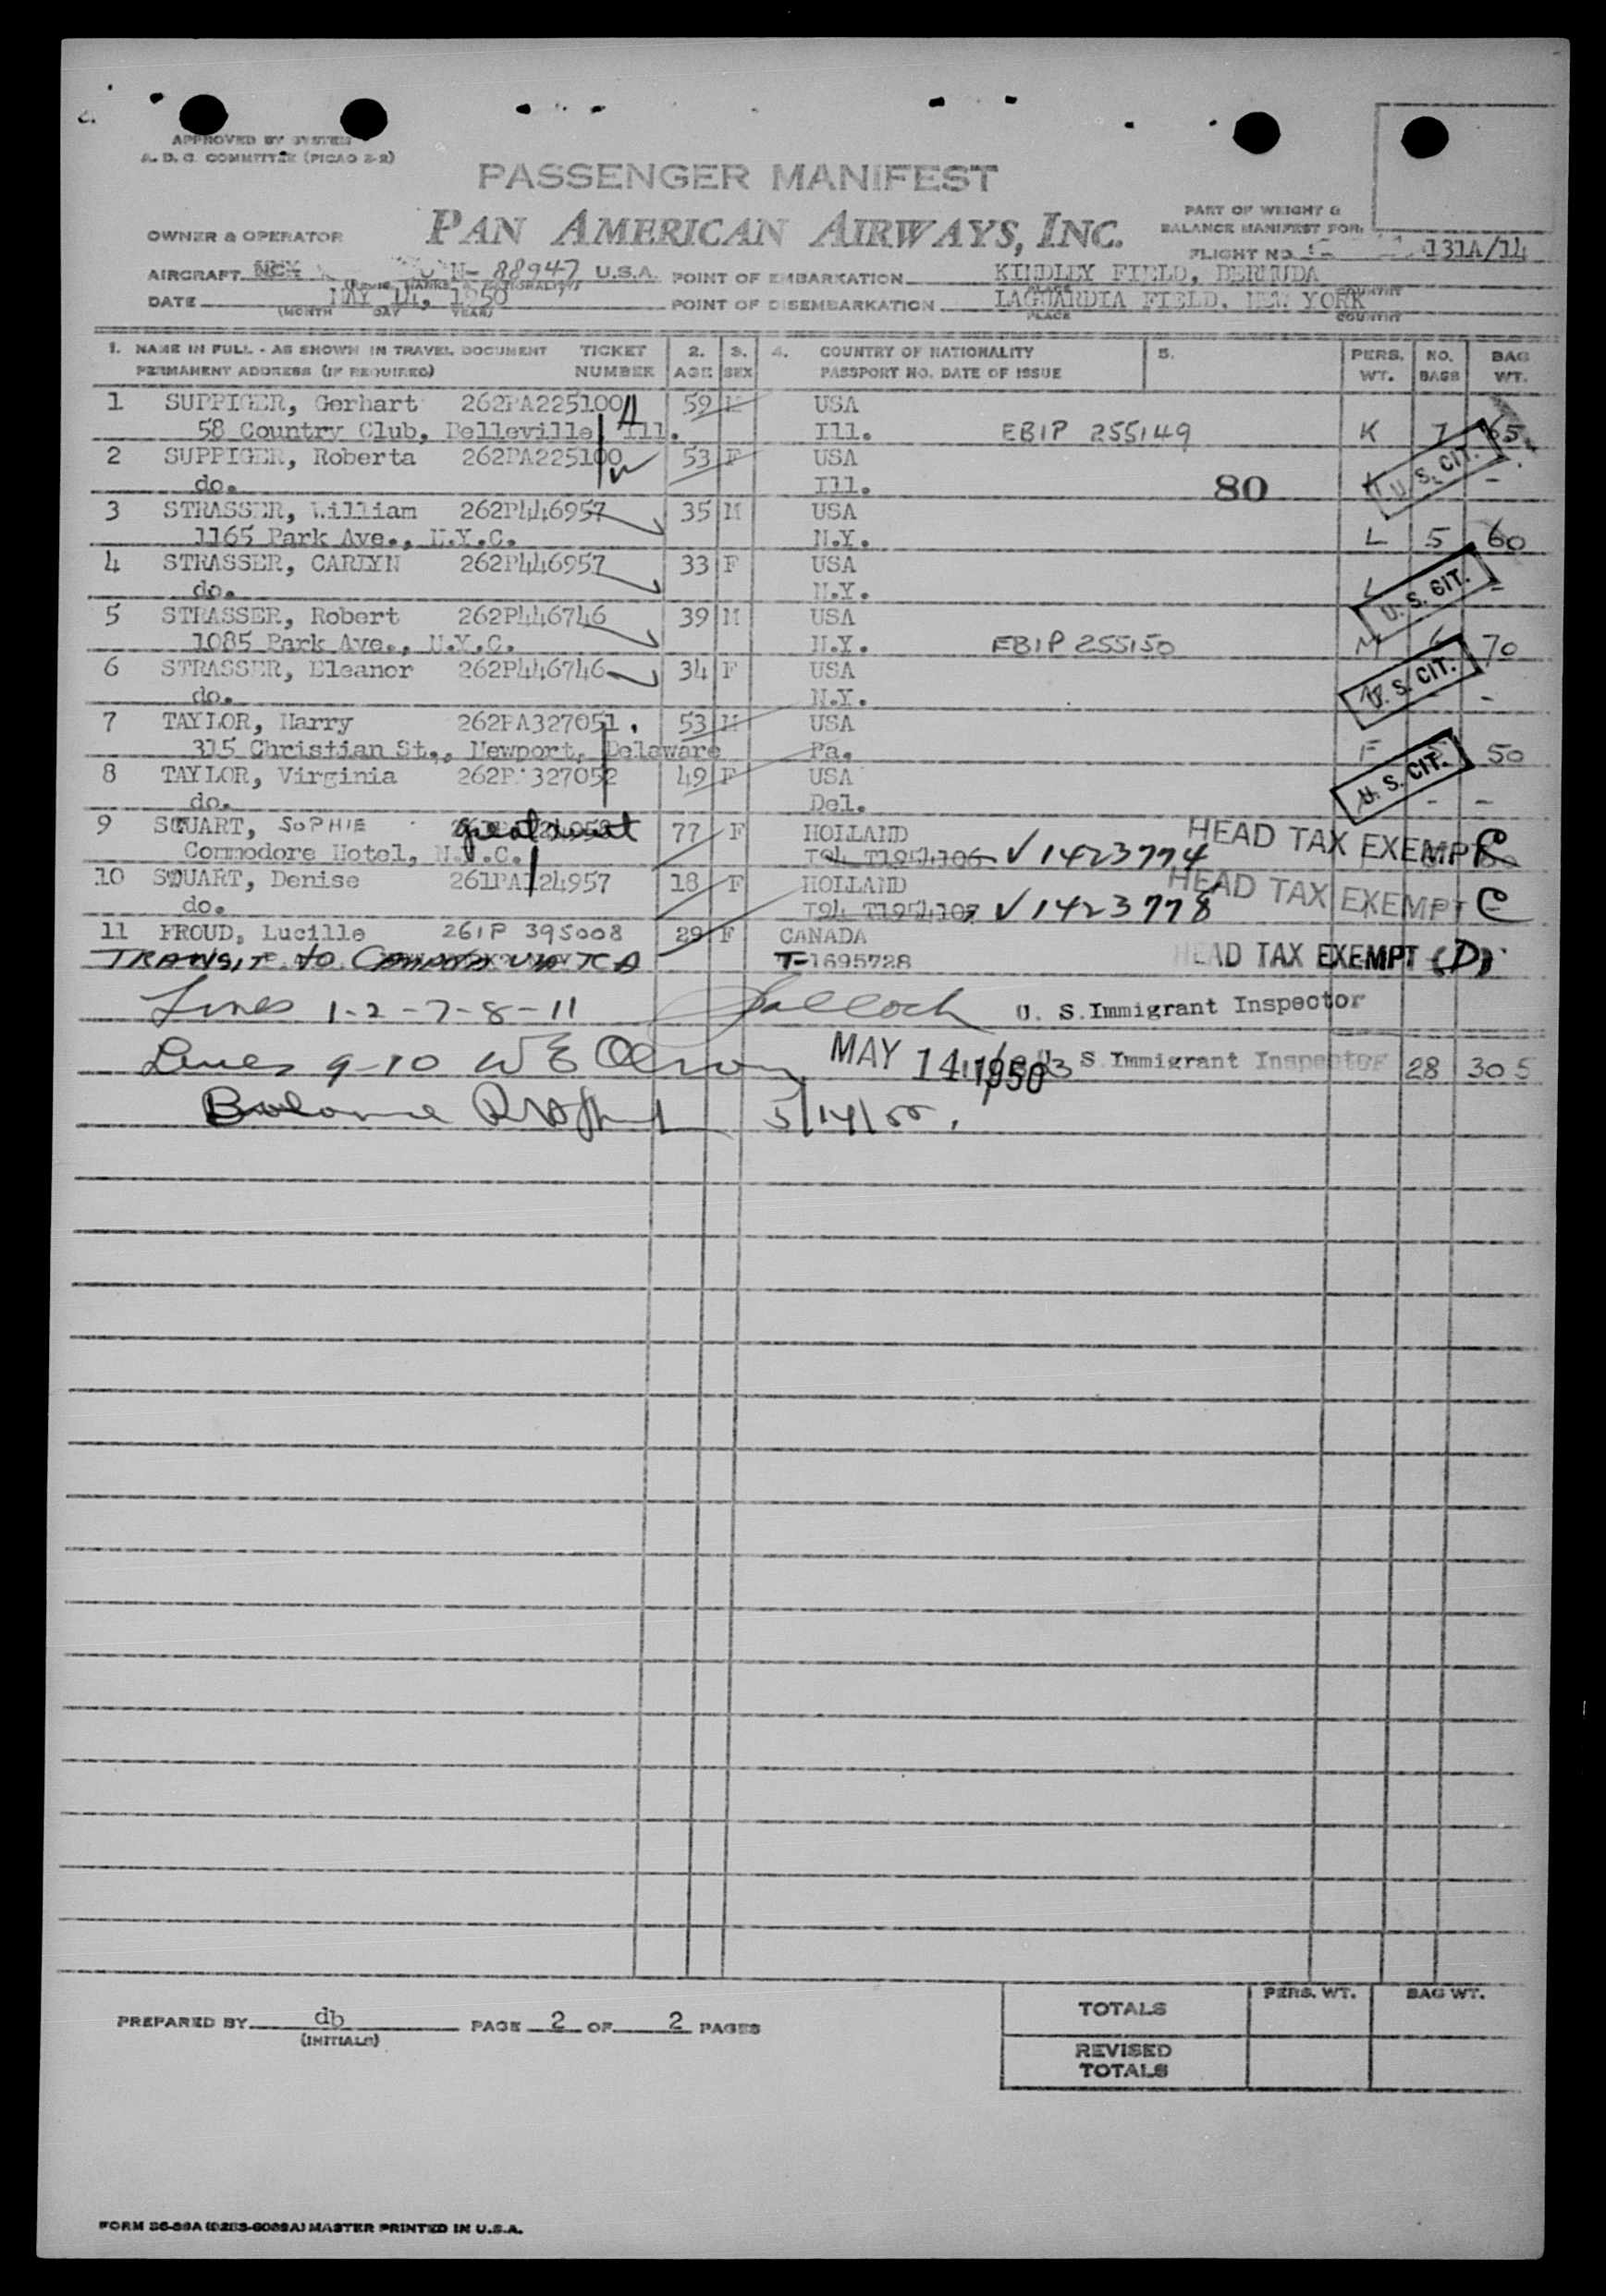 APPROVED BY SYSTEM
A. D. C. COMMITTEE (PICAO 2-R)
PASSENGER MANIFEST
OWNER & OPERATOR PAN AMERICAN AIRWAYS, INC.
PART OF WEIGHT &
BALANCE MANIFEST FOR:
FLIGHT NO. 131A/14
AIRCRAFT N- 88947 U.S.A. POINT OF EMBARKATION KINDLEY FIELD, BERMUDA
DATE MAY 14, 1950 POINT OF DISEMBARKATION LAGUARDIA FIELD, NEW YORK
(MONTH DAY YEAR) PLACE COUNTRY
1. NAME IN FULL - AS SHOWN IN TRAVEL DOCUMENT TICKET 2. 3. 4. COUNTRY OF NATIONALITY 5. PERS. NO. BAG
PERMANENT ADDRESS (IF REQUIRED) NUMBER AGE SEX PASSPORT NO. DATE OF ISSUE WT. BAGS WT.
1 SUPPIGER, Gerhart 262PA225100 59 M USA
58 Country Club, Belleville, Ill. Ill. EBIP 255149 K 7 65
2 SUPPIGER, Roberta 262PA225100 53 F USA
do. Ill. 80 U. S. CIT. -
3 STRASSER, William 262P446957 35 M USA
1165 Park Ave., N.Y.C. N.Y. L 5 60
4 STRASSER, CARLYN 262P446957 33 F USA
do. N.Y. L U. S. CIT. -
5 STRASSER, Robert 262P446746 39 M USA
1085 Park Ave., N.Y.C. N.Y. EBIP 255150 M 6 70
6 STRASSER, Eleanor 262P446746 34 F USA
do. N.Y. U. S. CIT. -
7 TAYLOR, Harry 262PA327051 53 M USA
315 Christian St., Newport, Delaware Pa. F 50
8 TAYLOR, Virginia 262P 327052 49 F USA
do. Del. U. S. CIT. - -
9 STUART, SOPHIE great aunt 77 F HOLLAND HEAD TAX EXEMPT C
Commodore Hotel, N.Y.C. T94 T1954106 V 1423774
10 STUART, Denise 261PA124957 18 F HOLLAND HEAD TAX EXEMPT C
do. T94 T1954107 V 1423778
11 FROUD, Lucille 261P 395008 29 F CANADA
TRANSIT to CANADA VIA TCA T-1695728 HEAD TAX EXEMPT (D)
Lines 1-2-7-8-11 U. S. Immigrant Inspector
Lines 9-10 W E Olson MAY 14 1950 U. S Immigrant Inspector 28 305
Balance 5/14/50.
PREPARED BY db PAGE 2 OF 2 PAGES
(INITIALS)
PERS. WT. BAG WT.
TOTALS
REVISED
TOTALS
MASTER PRINTED IN U.S.A.